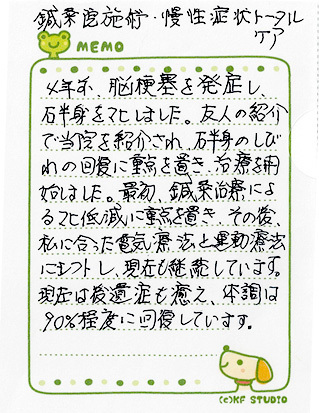 鍼灸院施術・慢性症状トータル
ケア
MEMO
4年前、脳梗塞を発症し、
右半身をマヒしました。友人の紹介
で当院を紹介され、右半身のしび
れの回復に重点を置き、治療を開
始しました。最初、鍼灸治療によ
るマヒ低減に重点を置き、その後、
私に合った電気療法と運動療法
にシフトし、現在も継続しています。
現在は後遺症も癒え、体調は
90%程度に回復しています。
(c)KF STUDIO